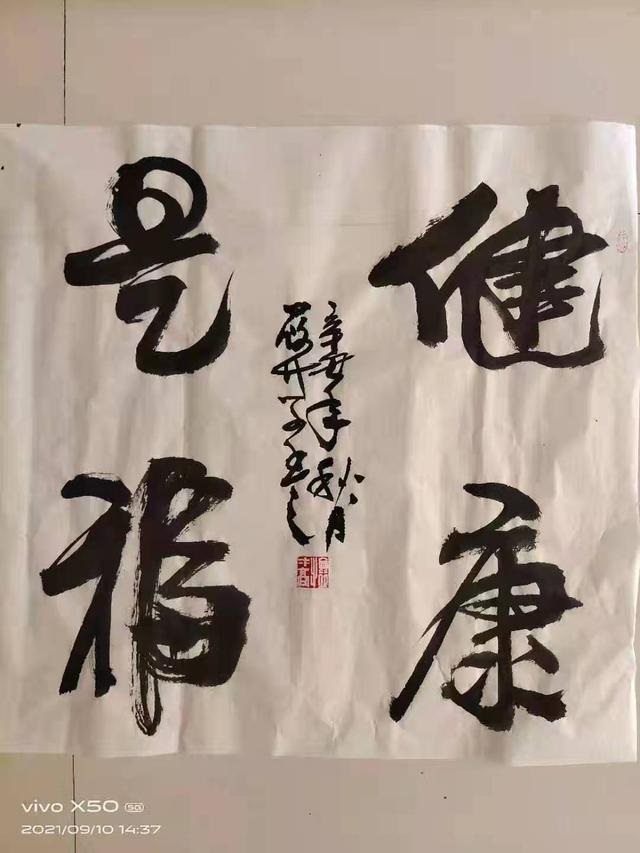 健康
是福
辛丑年秋月
vivo X50 5G
2021/09/10 14:37